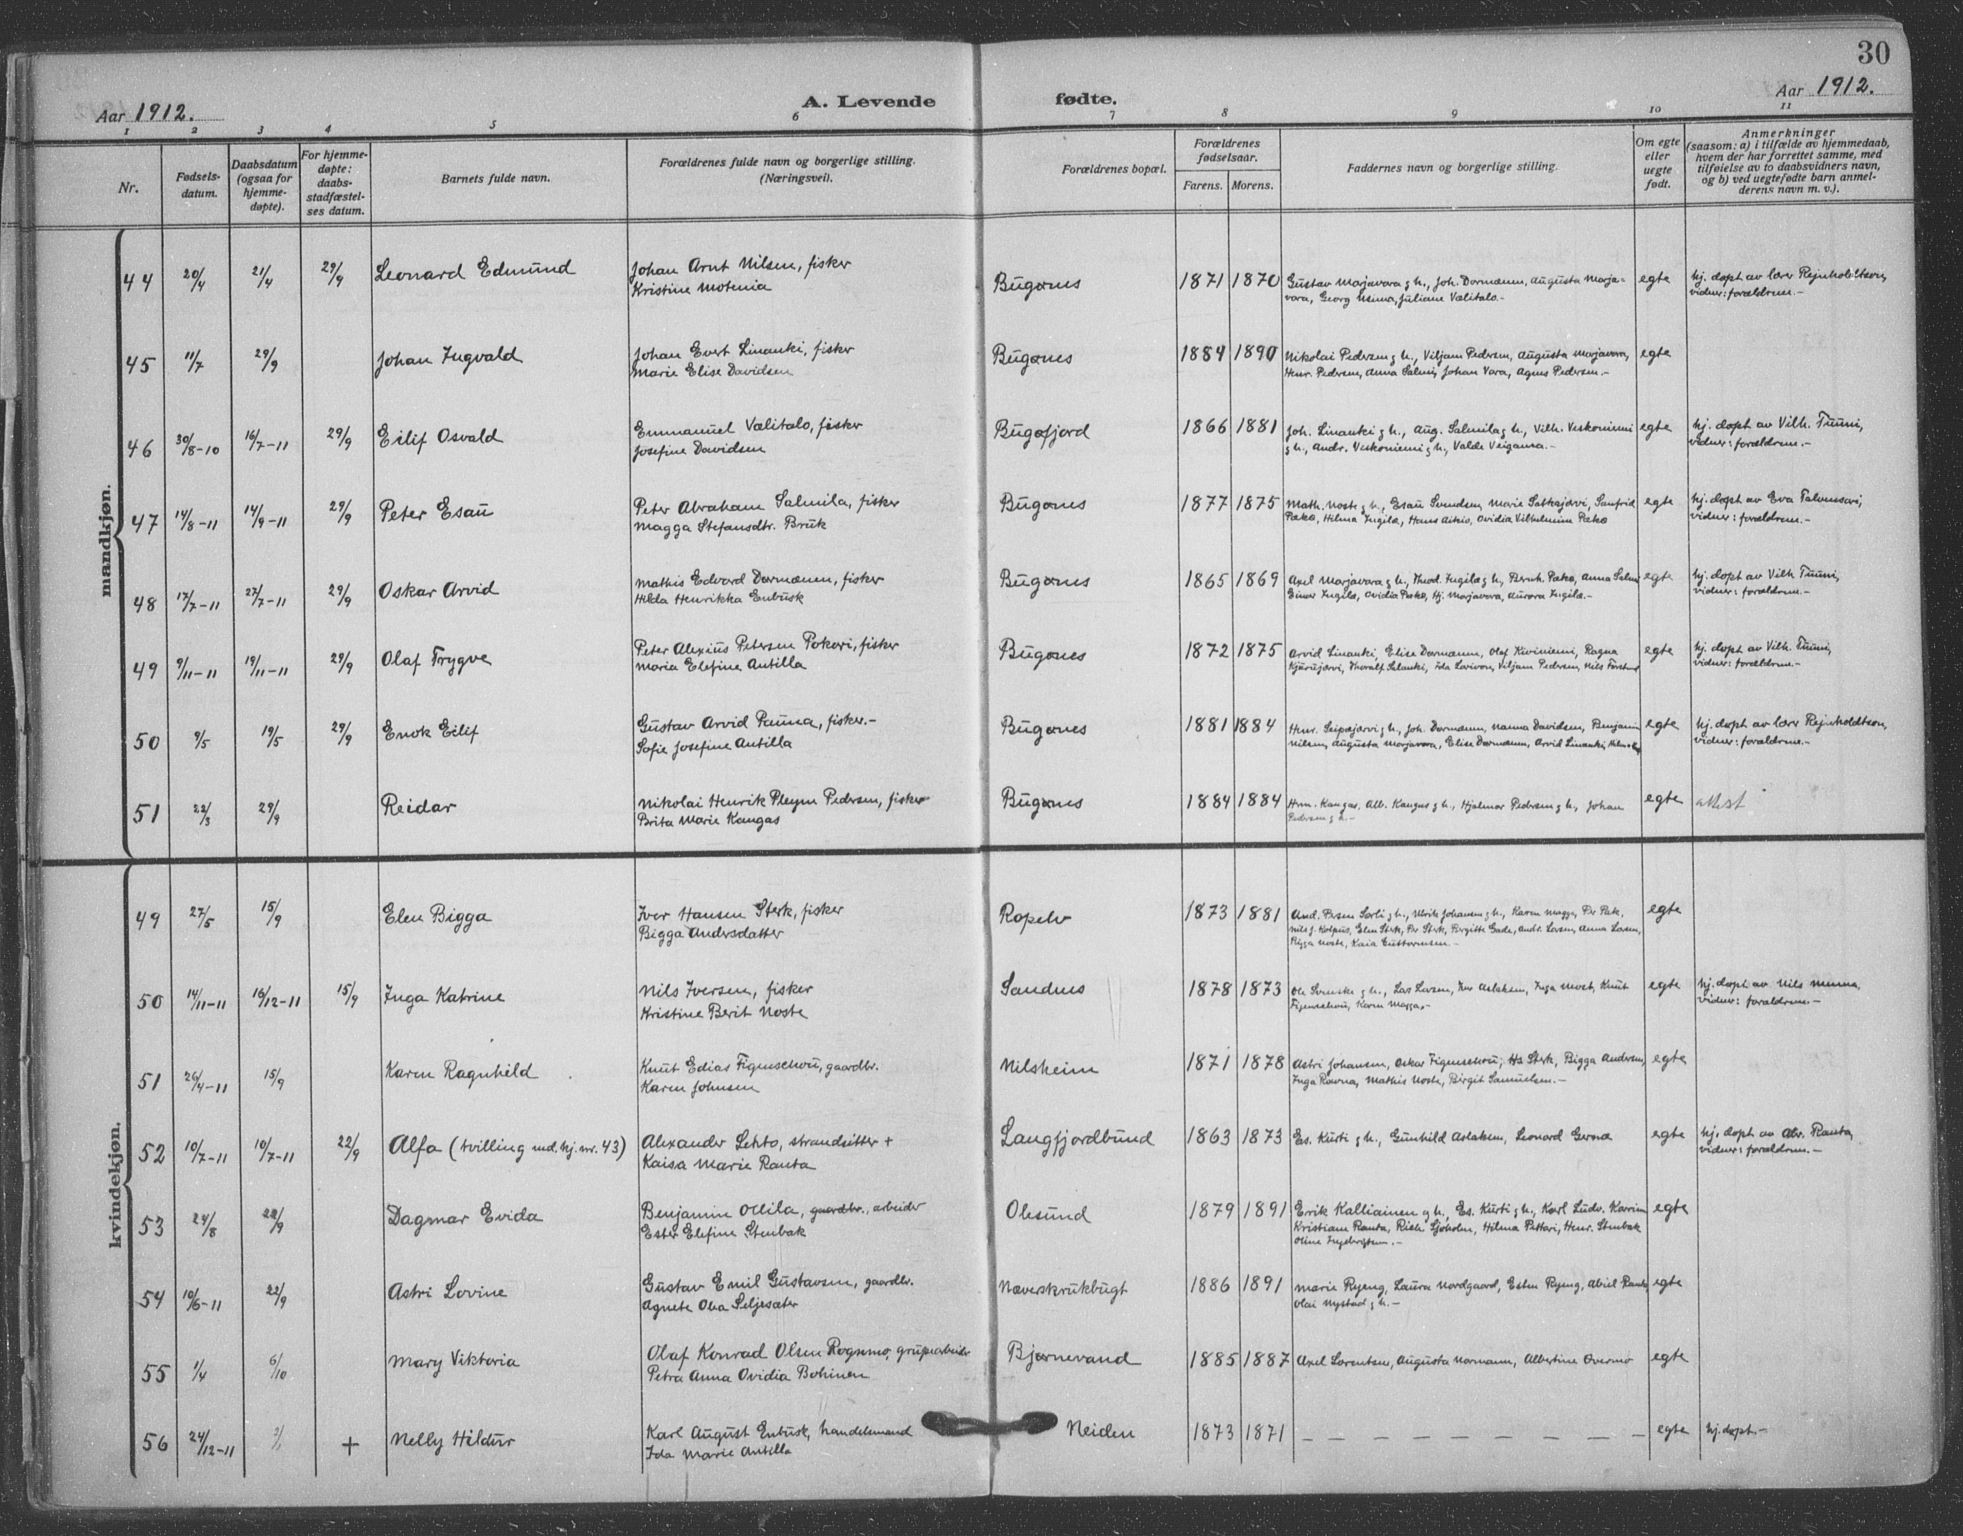 30
Aar 1912.
A. Levende
fødte.
Aar 1912.
1 2 3 4 5 6 7 8 9 10 11
Nr.
Fødsels-
datum.
Daabsdatum
(ogsaa for
hjemme-
døpte).
For hjemme-
døpte:
daabs-
stadfæstel-
ses datum.
Barnets fulde navn.
Forældrenes fulde navn og borgerlige stilling.
(Næringsvei).
Forældrenes bopæl.
Forældrenes
fødselsaar.
Farens. Morens.
Faddernes navn og borgerlige stilling.
Om egte
eller
uegte
født.
Anmerkninger
(saasom: a) i tilfælde av hjemmedaab,
hvem der har forrettet samme, med
tilføielse av to daabsvidners navn,
og b) ved uegtefødte barn anmel-
derens navn m. v.).
mandkjøn.
44 20/4 21/4 29/9 Leonard Edmund Johan Arnt Nilsen, fisker Bugønes 1871 1870 Gustav Marjavara g h., Joh. Dørmænen, Augusta Marja- egte hj. døpt av lærer Rejnholdtsen,
Kristine Motenia vara, Georg Juliane Välitalo.- vidner: forældrene.-
45 11/7 29/9 Johan Ingvald Johan Evert Linanki, fisker Bugønes 1884 1890 Nikolai Pedersen g h., Viljam Pedersen, Augusta Marjavara, egte
Marie Elise Davidsen Henr. Pedersen, Anna Salmi, Johan Vara, Agnes Pedersen.-
46 30/8-10 16/7-11 29/9 Eilif Osvald Emmanuel Välitalo, fisker Bugøfjord 1866 1881 Joh. Linanki g h., Aug. Salmila g h., Vilh. Veskoniemi egte hj. døpt av Vilh. Tuuni,
Josefine Davidsen g h., Andr. Veskoniemi g h., Valde Veigansa.- vidner: forældrene.-
47 14/8-11 14/9-11 29/9 Peter Esau Peter Abraham Salmila, fisker Bugønes 1877 1875 Math. Noste g h., Esau Svendsen, Marie egte hj. døpt av Eva
Magga Stefansdtr. Bruk Hilma Ingilæ, Hans Aikio, Ovidia Vilhelmine vidner: forældrene.-
48 17/7-11 27/7-11 29/9 Oskar Arvid Mathis Edvard Dørmænen, fisker Bugønes 1865 1869 Axel Marjavara g h., Theod. Ingilæ g h., Anna Salmi egte hj. døpt av Vilh. Tuuni,
Hilda Henrikka Enbusk Einar Ingilæ, Ovidia Hj. Marjavara, Aurora Ingilæ.- vidner: forældrene.-
49 9/11-11 19/11-11 29/9 Olaf Trygve Peter Alexius Petersen Pokari, fisker Bugønes 1872 1875 Arvid Linanki, Elise Dørmænen, Olaf Kiviniemi, Ragna egte hj. døpt av Vilh. Tuuni,
Maria Elefine Antilla Thoralf Salanki, Ida Viljam Pedersen, Nils vidner: forældrene.-
50 9/5 19/5 29/9 Enok Eilif Gustav Arvid Pauna, fisker.- Bugønes 1881 1884 Henr. Seipæjærvi g h., Joh. Dørmænen, Nanna Davidsen, Benjamin egte hj. døpt av lærer Rejnholdtsen,
Sofie Josefine Antilla Nilsen, Augusta Marjavara, Elise Dørmænen, Arvid Linanki, vidner: forældrene.-
51 22/3 29/9 Reidar Nikolai Henrik Pleym Pedersen, fisker Bugønes 1884 1884 Herm. Kangas, Alb. Kangas g h., Hjalmar Pedersen g h., Johan egte attest
Brita Marie Kangas Pedersen g h.-
kvindekjøn.
49 27/5 15/9 Elen Bigga Iver Hansen Sterk, fisker Ropelv 1873 1881 And. Persen Sarli g h., Ulrik Johansen g h., Karen Magga, Per egte
Bigga Andersdatter Nils J. Kolpus, Elen Sterk, Per Sterk, Birgitte Gade, Andr. Larsen, Anna Larsen,
Bigga Noste, Kaia Guttormsen.-
50 14/11-11 16/12-11 15/9 Inga Katrine Nils Iversen, fisker Sandnes 1878 1873 Ole g h., Lars Larsen, Iver Aslaksen, Inga Most, Knut egte hj. døpt av Nils
Kristine Berit Noste Figenschou, Karen Magga.- vidner: forældrene.-
51 26/4-11 15/9 Karen Ragnhild Knut Edias Figenschou, gaardbr. Nilsheim 1871 1878 Astri Johansen, Oskar Figenschou, Hs Sterk, Bigga Andersen, egte
Karen Johnsen Inga Ravna, Mathis Noste, Birgit Samuelsen.-
52 10/7-11 10/7-11 22/9 Alfa (tvilling med hj. nr. 43) Alexander Lehto, strandsitter + Langfjordbund 1863 1873 Es. Kurti g h., Gunhild Aslaksen, Leonard egte hj. døpt av Abr. Ranta,
Kaisa Marie Ranta vidner: forældrene.-
53 24/8 22/9 Dagmar Evida Benjamin Ollila, gaardbr., arbeider Olesund 1879 1891 Erik Kalliainen g h., Es. Kurti g h., Karl Ludv. Karrien egte
Ester Elefine Stenbak Kristiane Ranta, Rich. Sjøholm, Hilma Pettari, Henr. Stenbak
Oline Ingebrigtsen.-
54 10/6-11 22/9 Astri Lovine Gustav Emil Gustavsen, gaardbr. Næverskrukbugt 1886 1891 Marie Ryeng, Laura Nordgaard, Esten Ryeng, Abiel Ranta, egte
Agnete Oba Seljesæter Olai Nystad g h.-
55 1/4 6/10 Mary Viktoria Olaf Konrad Olsen Rognmo, grubearbeider Bjørnevand 1885 1887 Axel Lorentsen, Augusta Normann, Albertine Overmo egte
Petra Anna Ovidia Bohinen
56 24/12-11 2/1 + Nelly Hildur Karl August Enbusk, handelsmand Neiden 1873 1871 — — — — — — — — — egte hj. døpt.-
Ida Marie Antilla